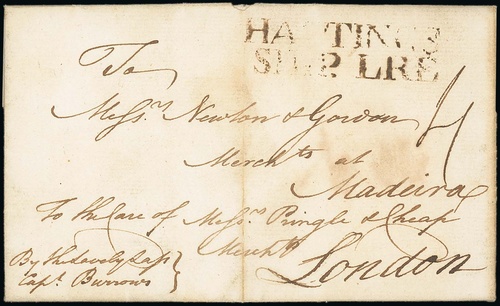 HASTINGS
SHIP LRE
To
4
Messrs. Newton & Gordon
Merchts at
Madeira
To the Care of Messrs. Pringle & Cheap
Mercht
London
By the Lovely Lass
Capt. Burrows